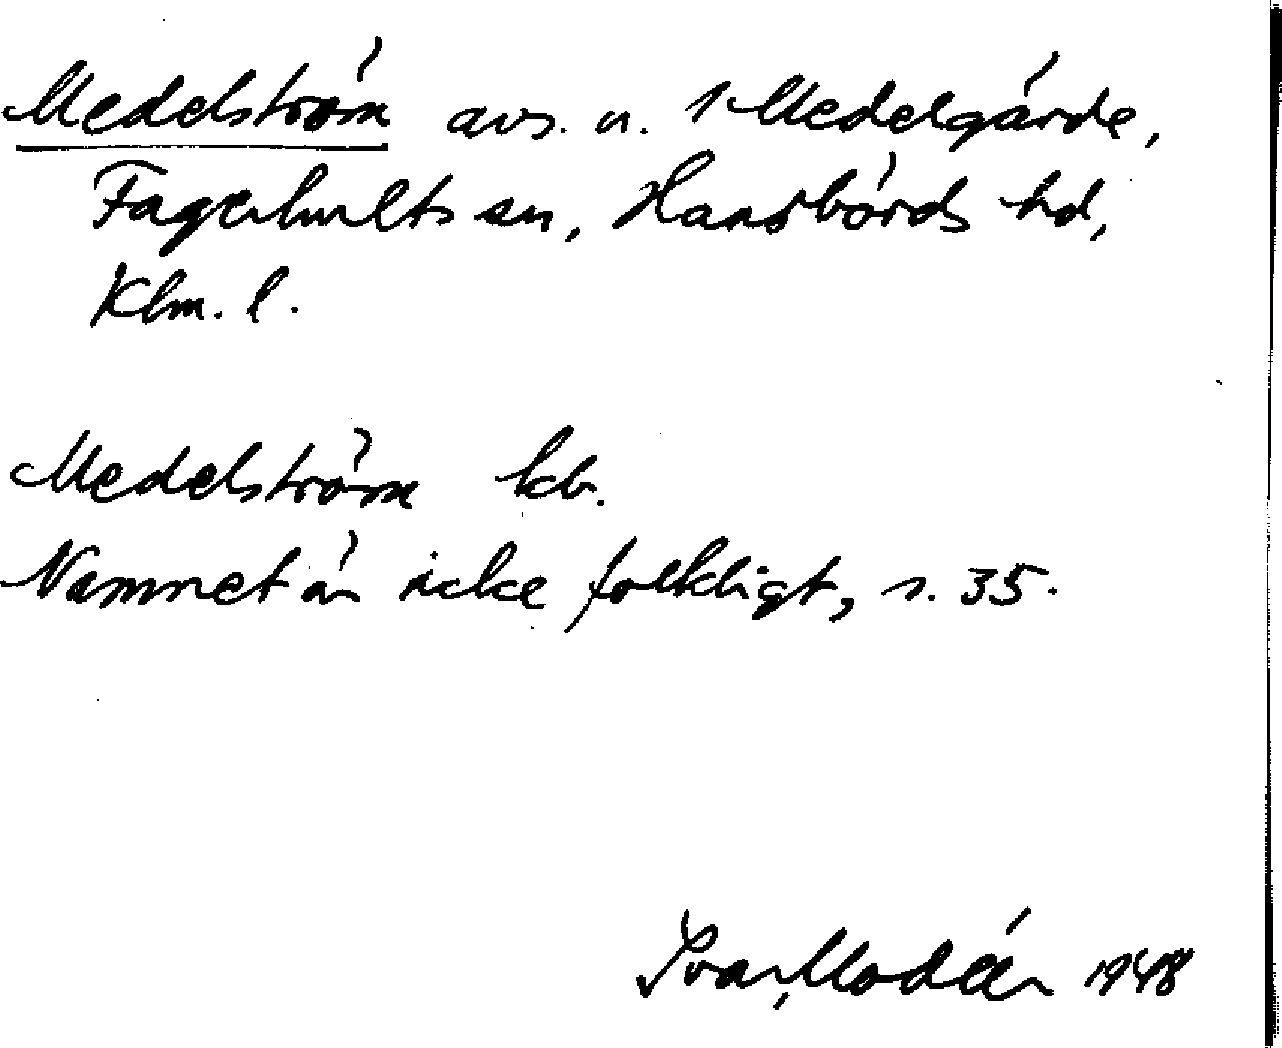 Medelström avs. u. 1 Medelgärde,
Fagerhults sn, Handbörds hd,
Klm. l.
Medelström kb.
Namnet är icke folkligt, s. 35.
Ivar Modéer 1948